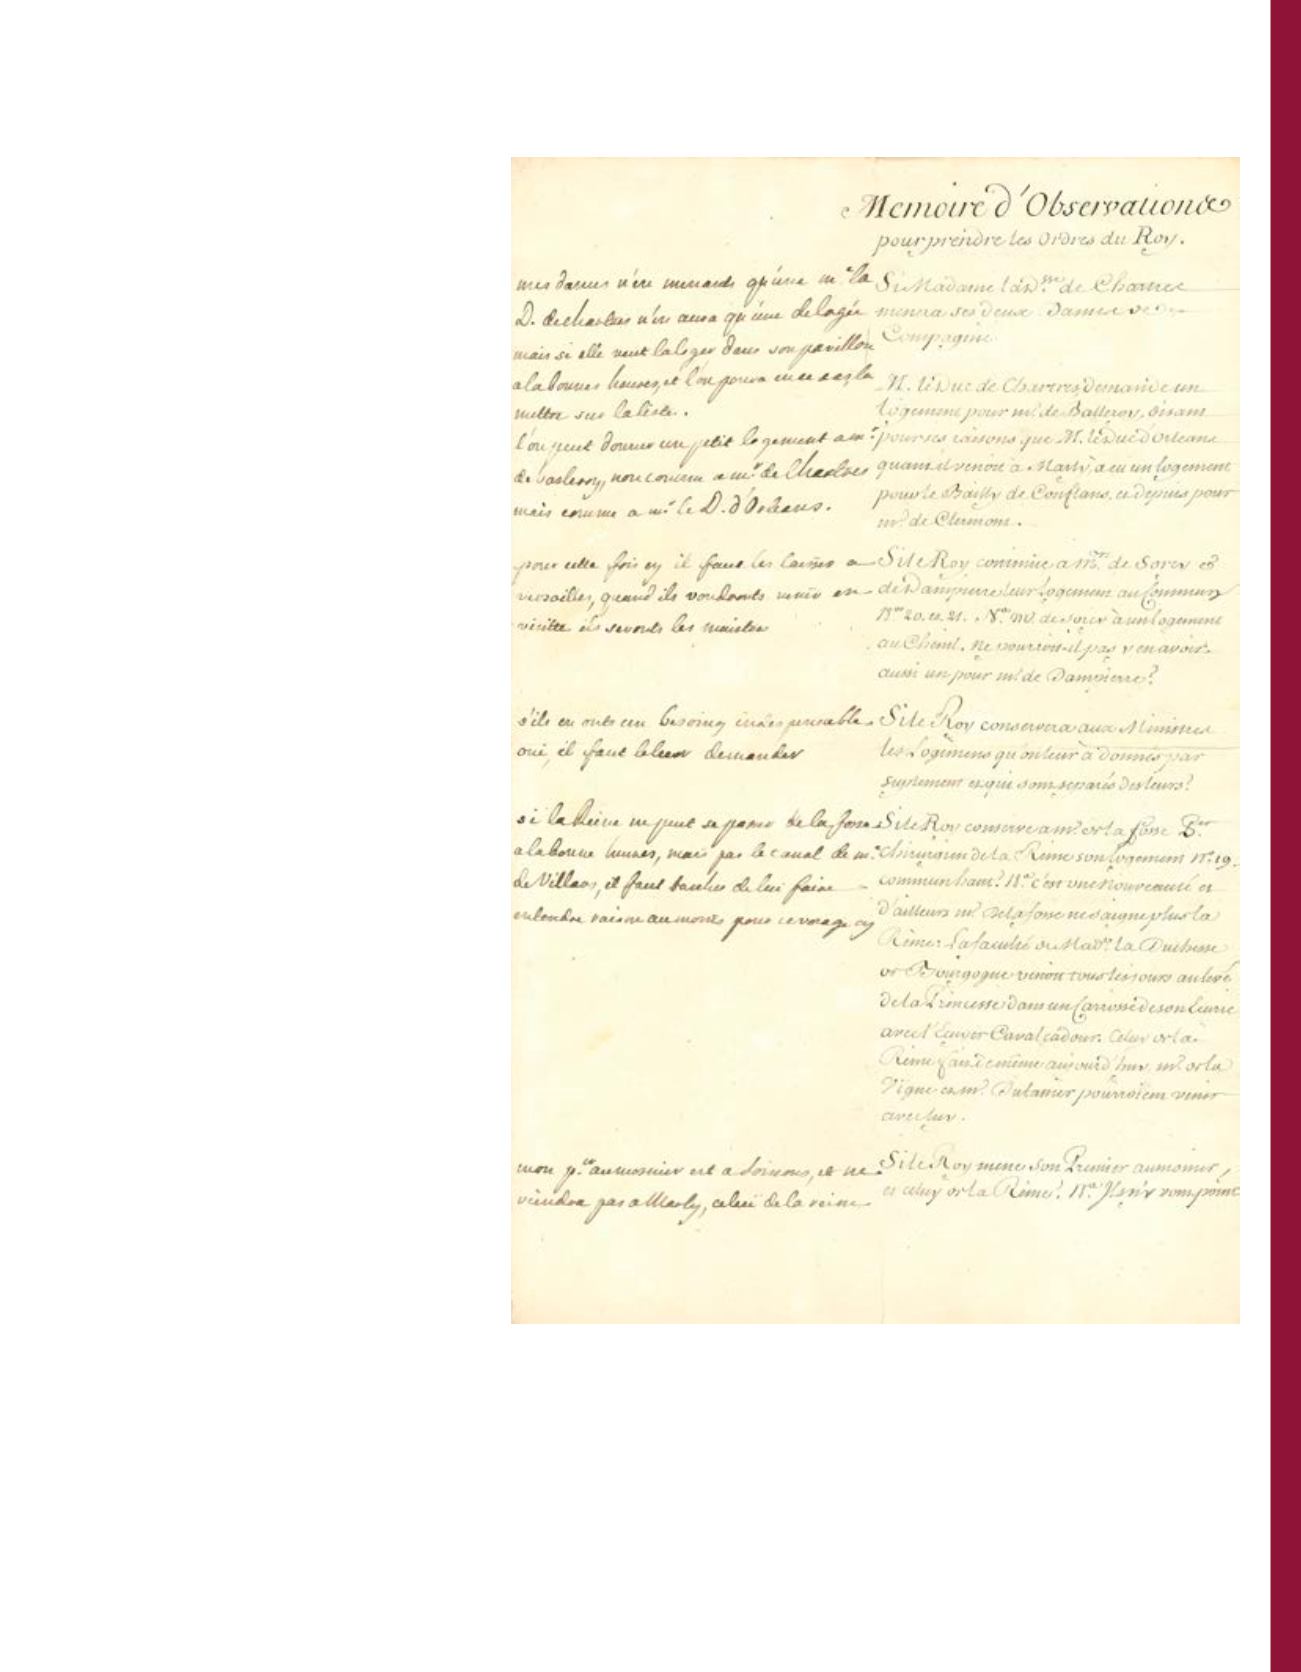 Memoire d'Observations
pour prendre les Ordres du Roy.
mes dames n'en menants qu'une me la
D. de chartres n'en aura qu'une de logée
mais si elle veut la loger dans son pavillon
a la bonne heure, et l'on poura en ce cas la
mettre sur la liste.
l'on peut donner un petit logement a mr
de balleroy, non comme a mr de Chartres
mais comme a mr le D. d'Orleans.
pour cette fois cy il faut les laisser a
versailles, quand ils voudronts venir en
visitte ils seronts les maistres
s'ils en onts eu besoing indispensable
oui, il faut le leur demander
si la Reine ne peut se passer de la fosse
a la bonne heure, mais par le canal de me
de Villars, il faut tascher de lui faire
entendre raison au moins pour ce voiage cy
mon p.er aumosnier est a soissons, et ne
viendra pas a Marly, celui de la reine
Si Madame la D.sse de Chartres
menera ses deux Dames de
Compagnie
M. le Duc de Chartres, demande un
logement pour mr. de Balleroy, disant
pour ses raisons que M. le Duc d'Orleans
quand il venoit à Marly, a eu un logement
pour le Bailly de Conflans, et depuis pour
mr. de Clermont.
Si le Roy continue a Mrs. de Sorcy et
de Dampierre leur logement au Commun
Nos 20. et 21. Na. mr. de Sorcy à un logement
au Chenil. ne pourroit-il pas y en avoir
aussi un pour mr. de Dampierre?
Si le Roy conservera aux Ministres
les Logemens qu'on leur à donnés par
suplement et qui sont separés des leurs?
Si le Roy conserve a mr. de la fosse P.er
Chirurgien de la Reine son logement No. 19.
commun haut? Na. c'est une nouveauté et
d'ailleurs mr. de la fosse ne saigne plus la
Reine. La faculté de Made. la Duchesse
de Bourgogne venoit tous les jours au levé
de la Princesse dans un Carrosse de son Ecurie
avec l'Ecuyer Cavalcadour. Celuy de la
Reine fait de même aujourd'huy. mr. de la
Vigne et mr. pourroient venir
avec luy.
Si le Roy mene son Premier aumonier,
et celuy de la Reine? Na. Ils n'y vont point